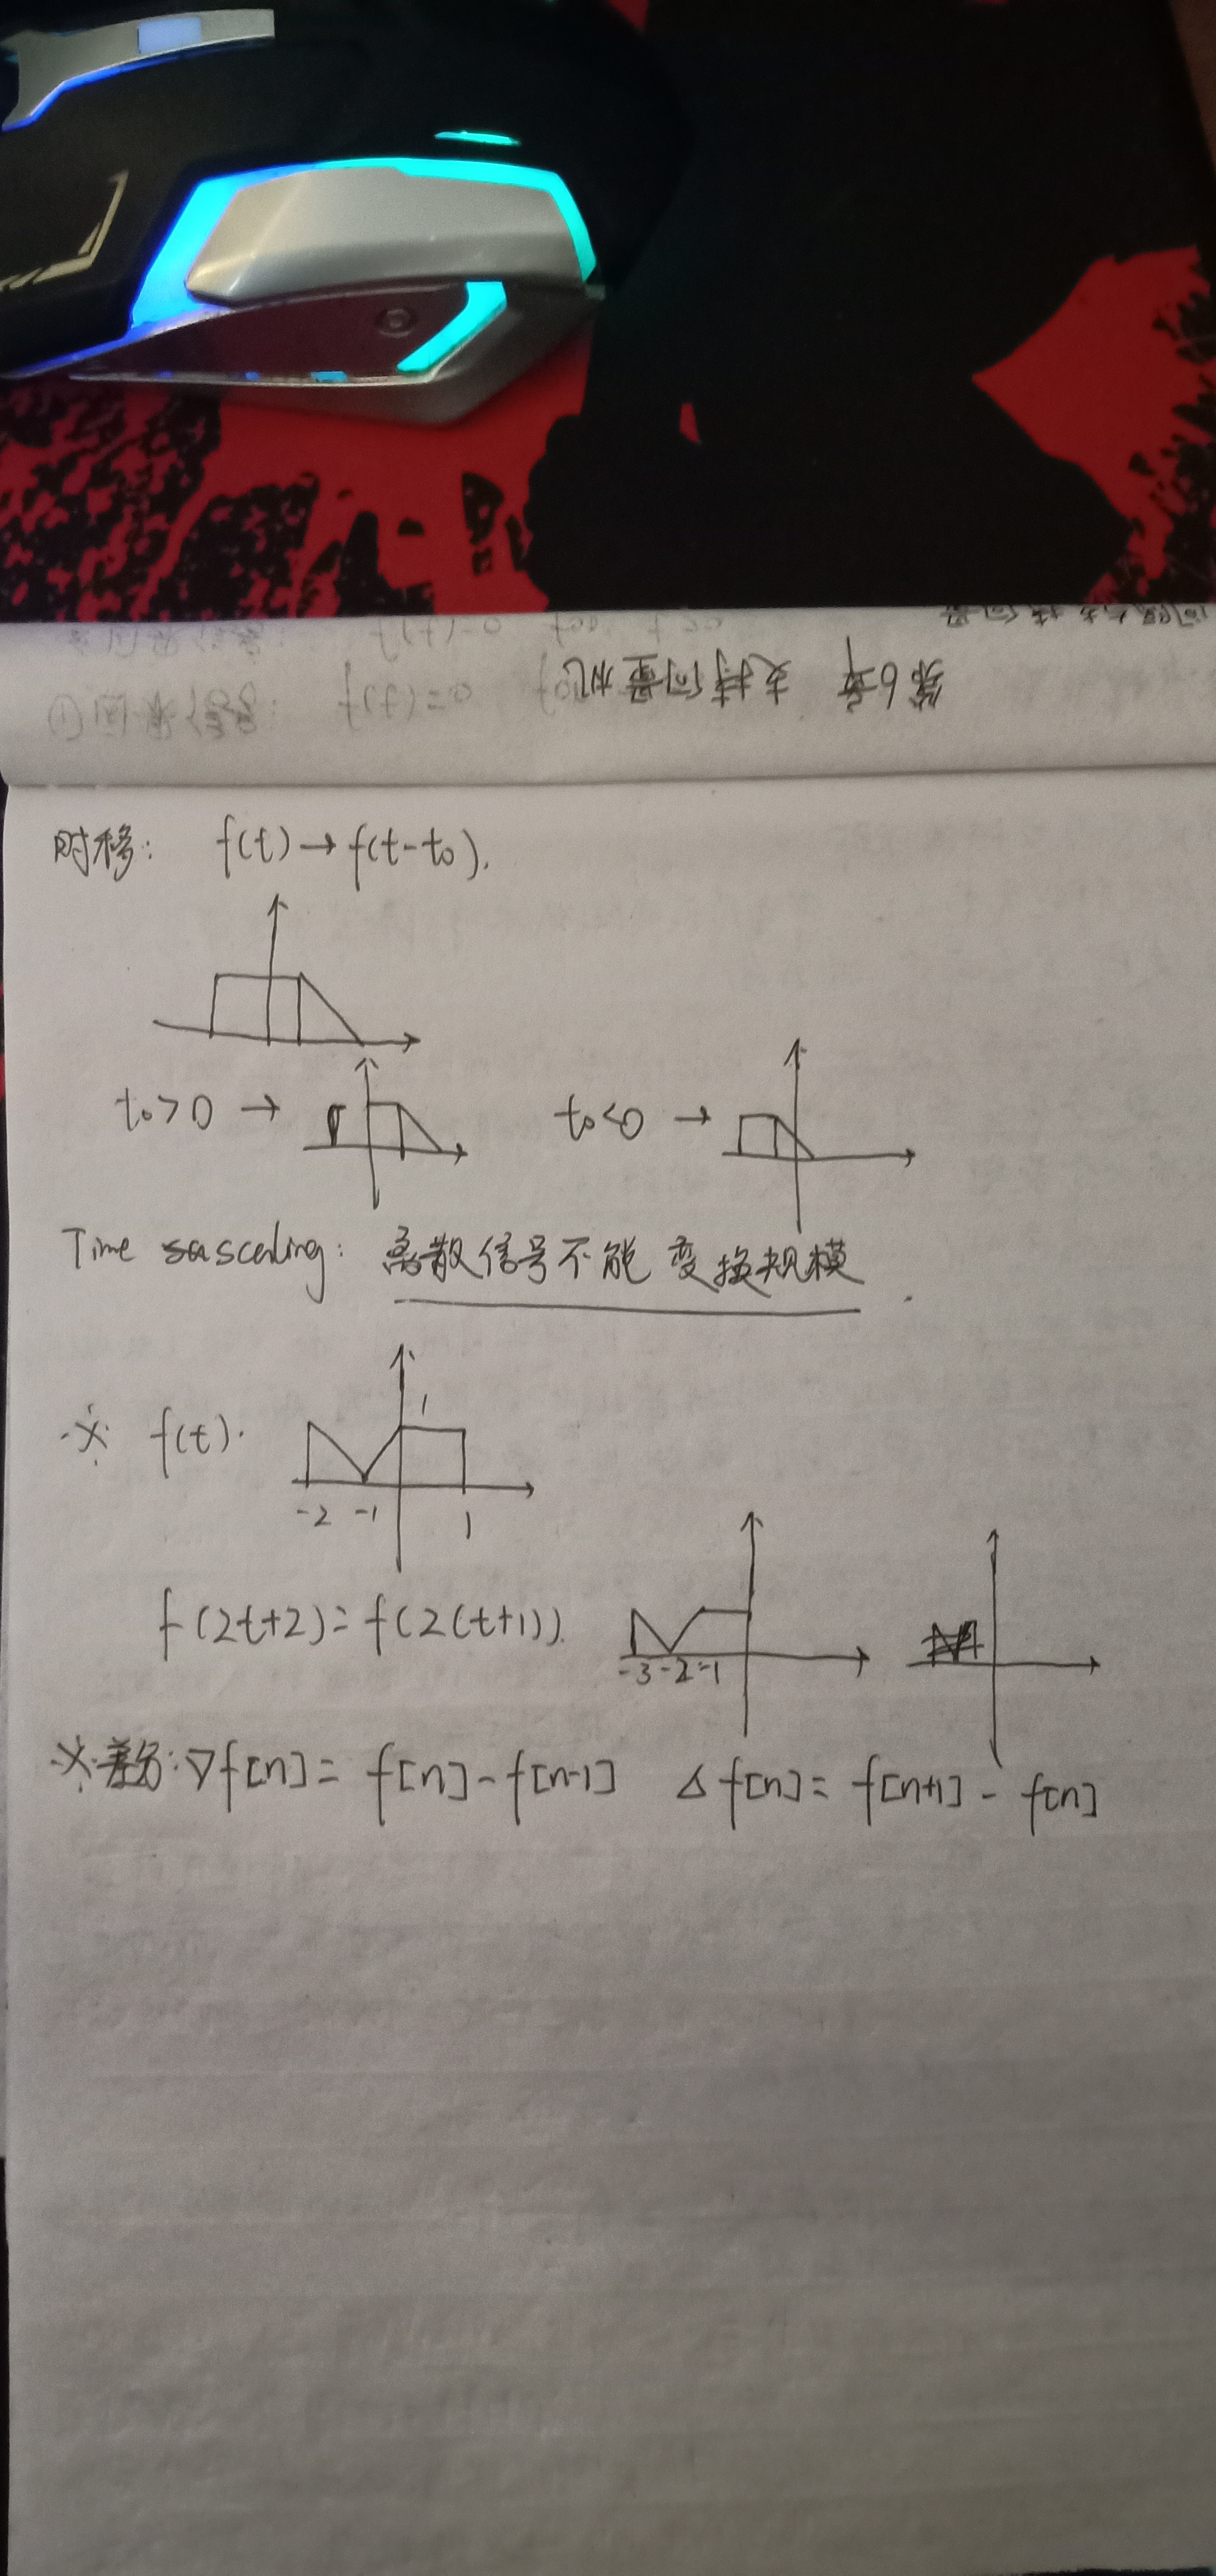 第6章 支持向量机
时移: f(t) → f(t-t₀).
t₀>0 → t₀<0 →
Time scaling: 离散信号不能变换规模
※ f(t). 1
-2 -1 1
f(2t+2)= f(2(t+1)).
-3 -2 -1
※差分: ∇f[n] = f[n] - f[n-1] Δf[n] = f[n+1] - f[n]